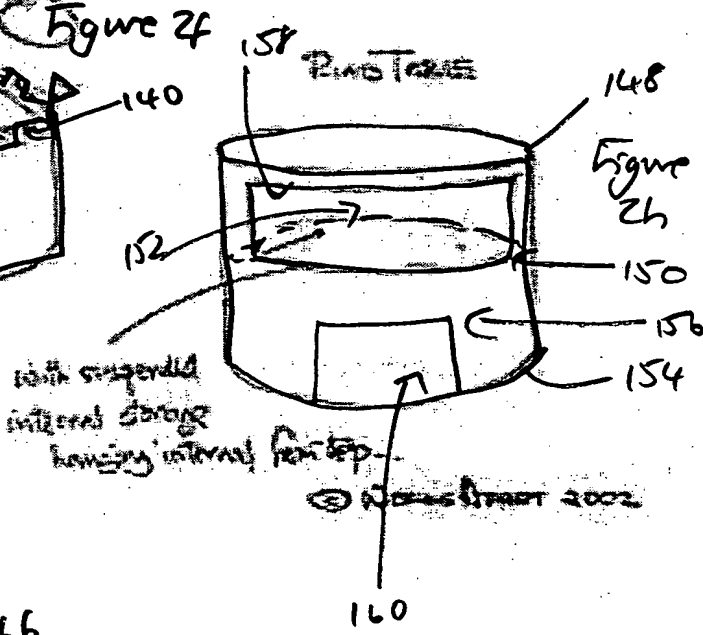 Figure 2f
158
140
148
Figure
2h
152
150
156
154
with suspended
internal storage
hanging internal from top
© 2002
160